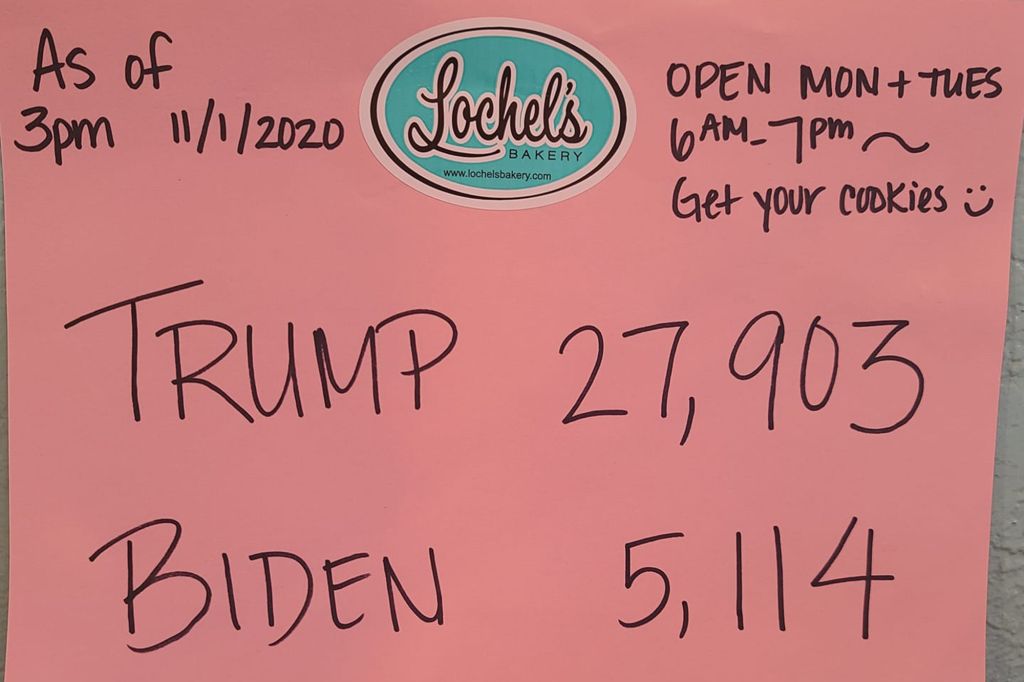 As of
3pm 11/1/2020
Lochel's
BAKERY
www.lochelsbakery.com
OPEN MON + TUES
6AM - 7pm ~
Get your cookies :)
TRUMP 27,903
BIDEN 5,114